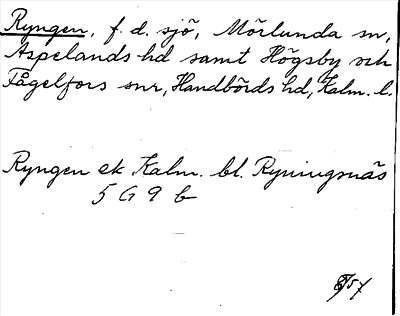 Ryngen, f. d. sjö, Mörlunda sn,
Aspelands hd samt Högsby och
Fågelfors snr, Handbörds hd, Kalm. l.
Ryngen ek Kalm. bl. Ryningsnäs
5 G 9 b
57